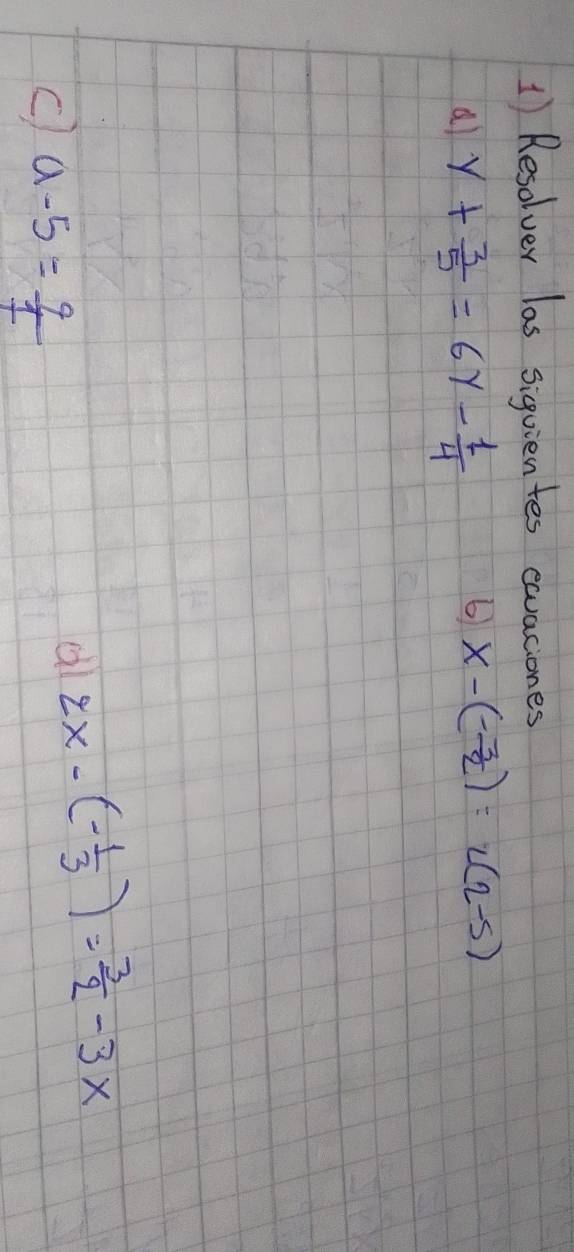 1) Resolver las siguientes ecuaciones
a) y + 3/5 = 6y - 1/4 b) x - (-3/2) = 2(2-5)
c) a - 5 = 9/7 d) 2x - (-1/3) = 3/2 - 3x